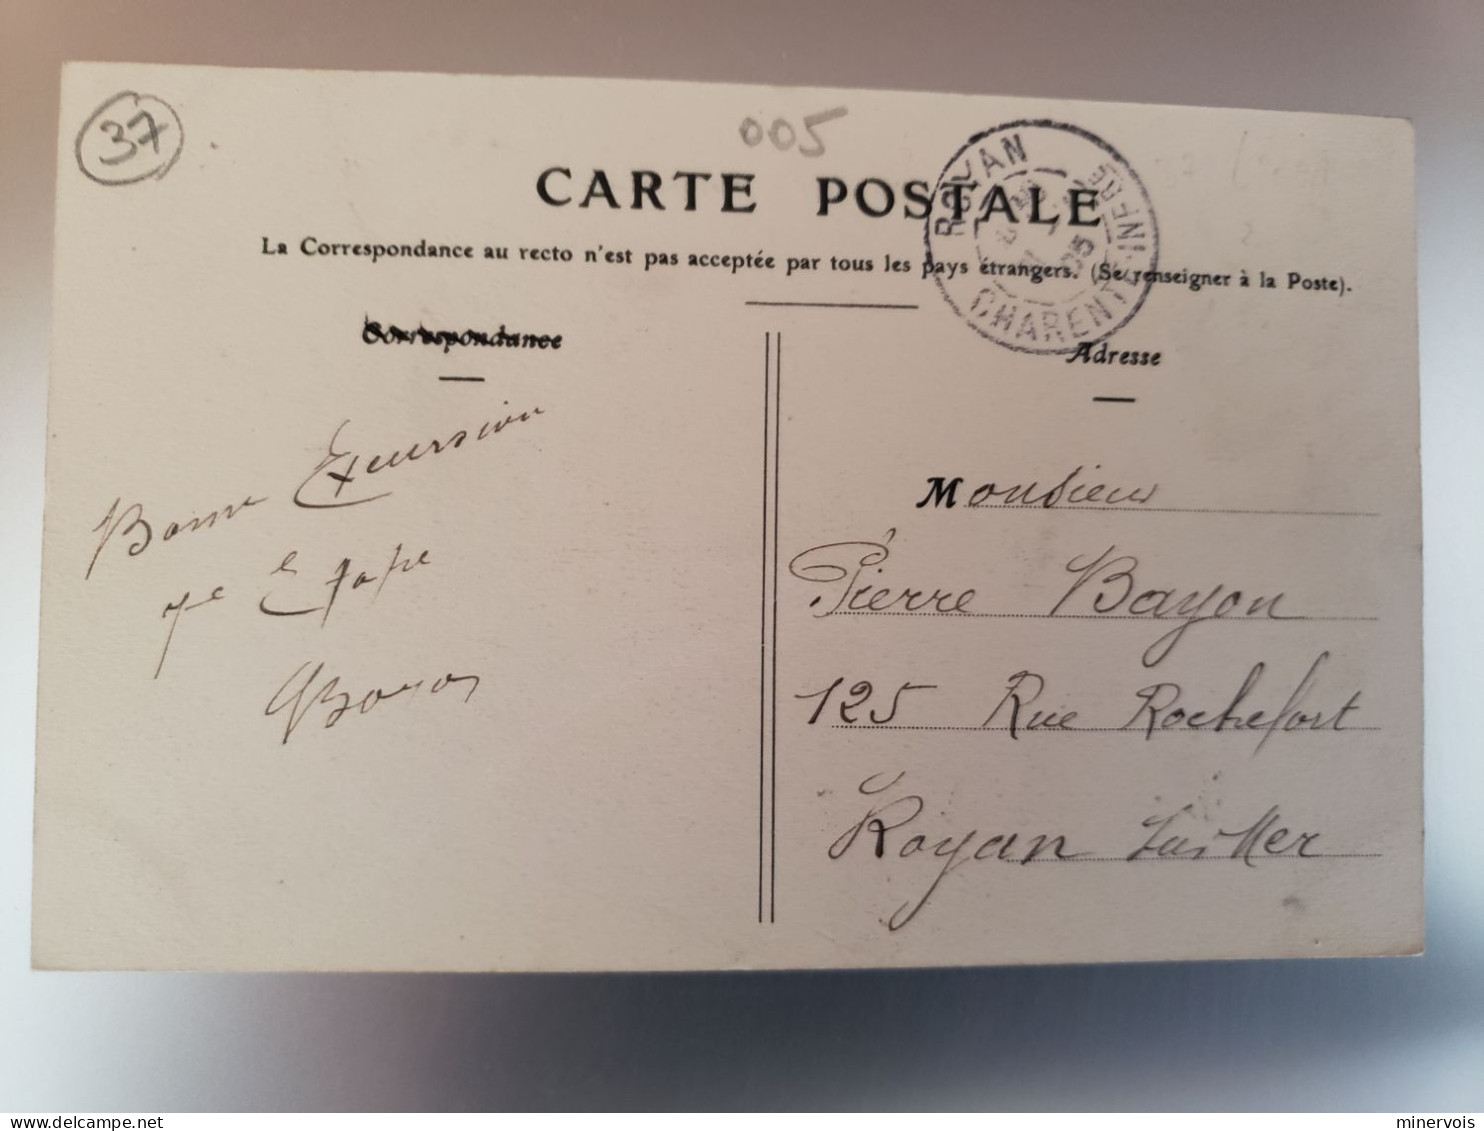 37
005
CARTE POSTALE
La Correspondance au recto n'est pas acceptée par tous les pays étrangers. (Se renseigner à la Poste).
ROYAN
CHARENTE-INFRE
05
Correspondance
Bonne Excursion
7e Etape
Adresse
Monsieur
Pierre Bayon
125 Rue Rochefort
Royan Sur Mer
minervois